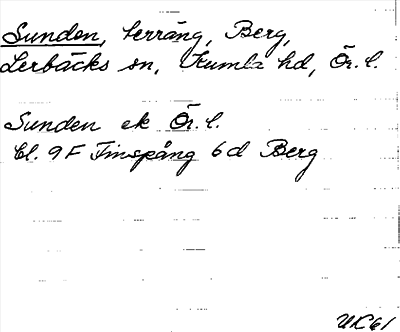 Sunden, terräng, Berg,
Lerbäcks sn, Kumla hd, Ör. l.
Sunden ek Ör. l.
bl. 9F Finspång 6d Berg
UK61